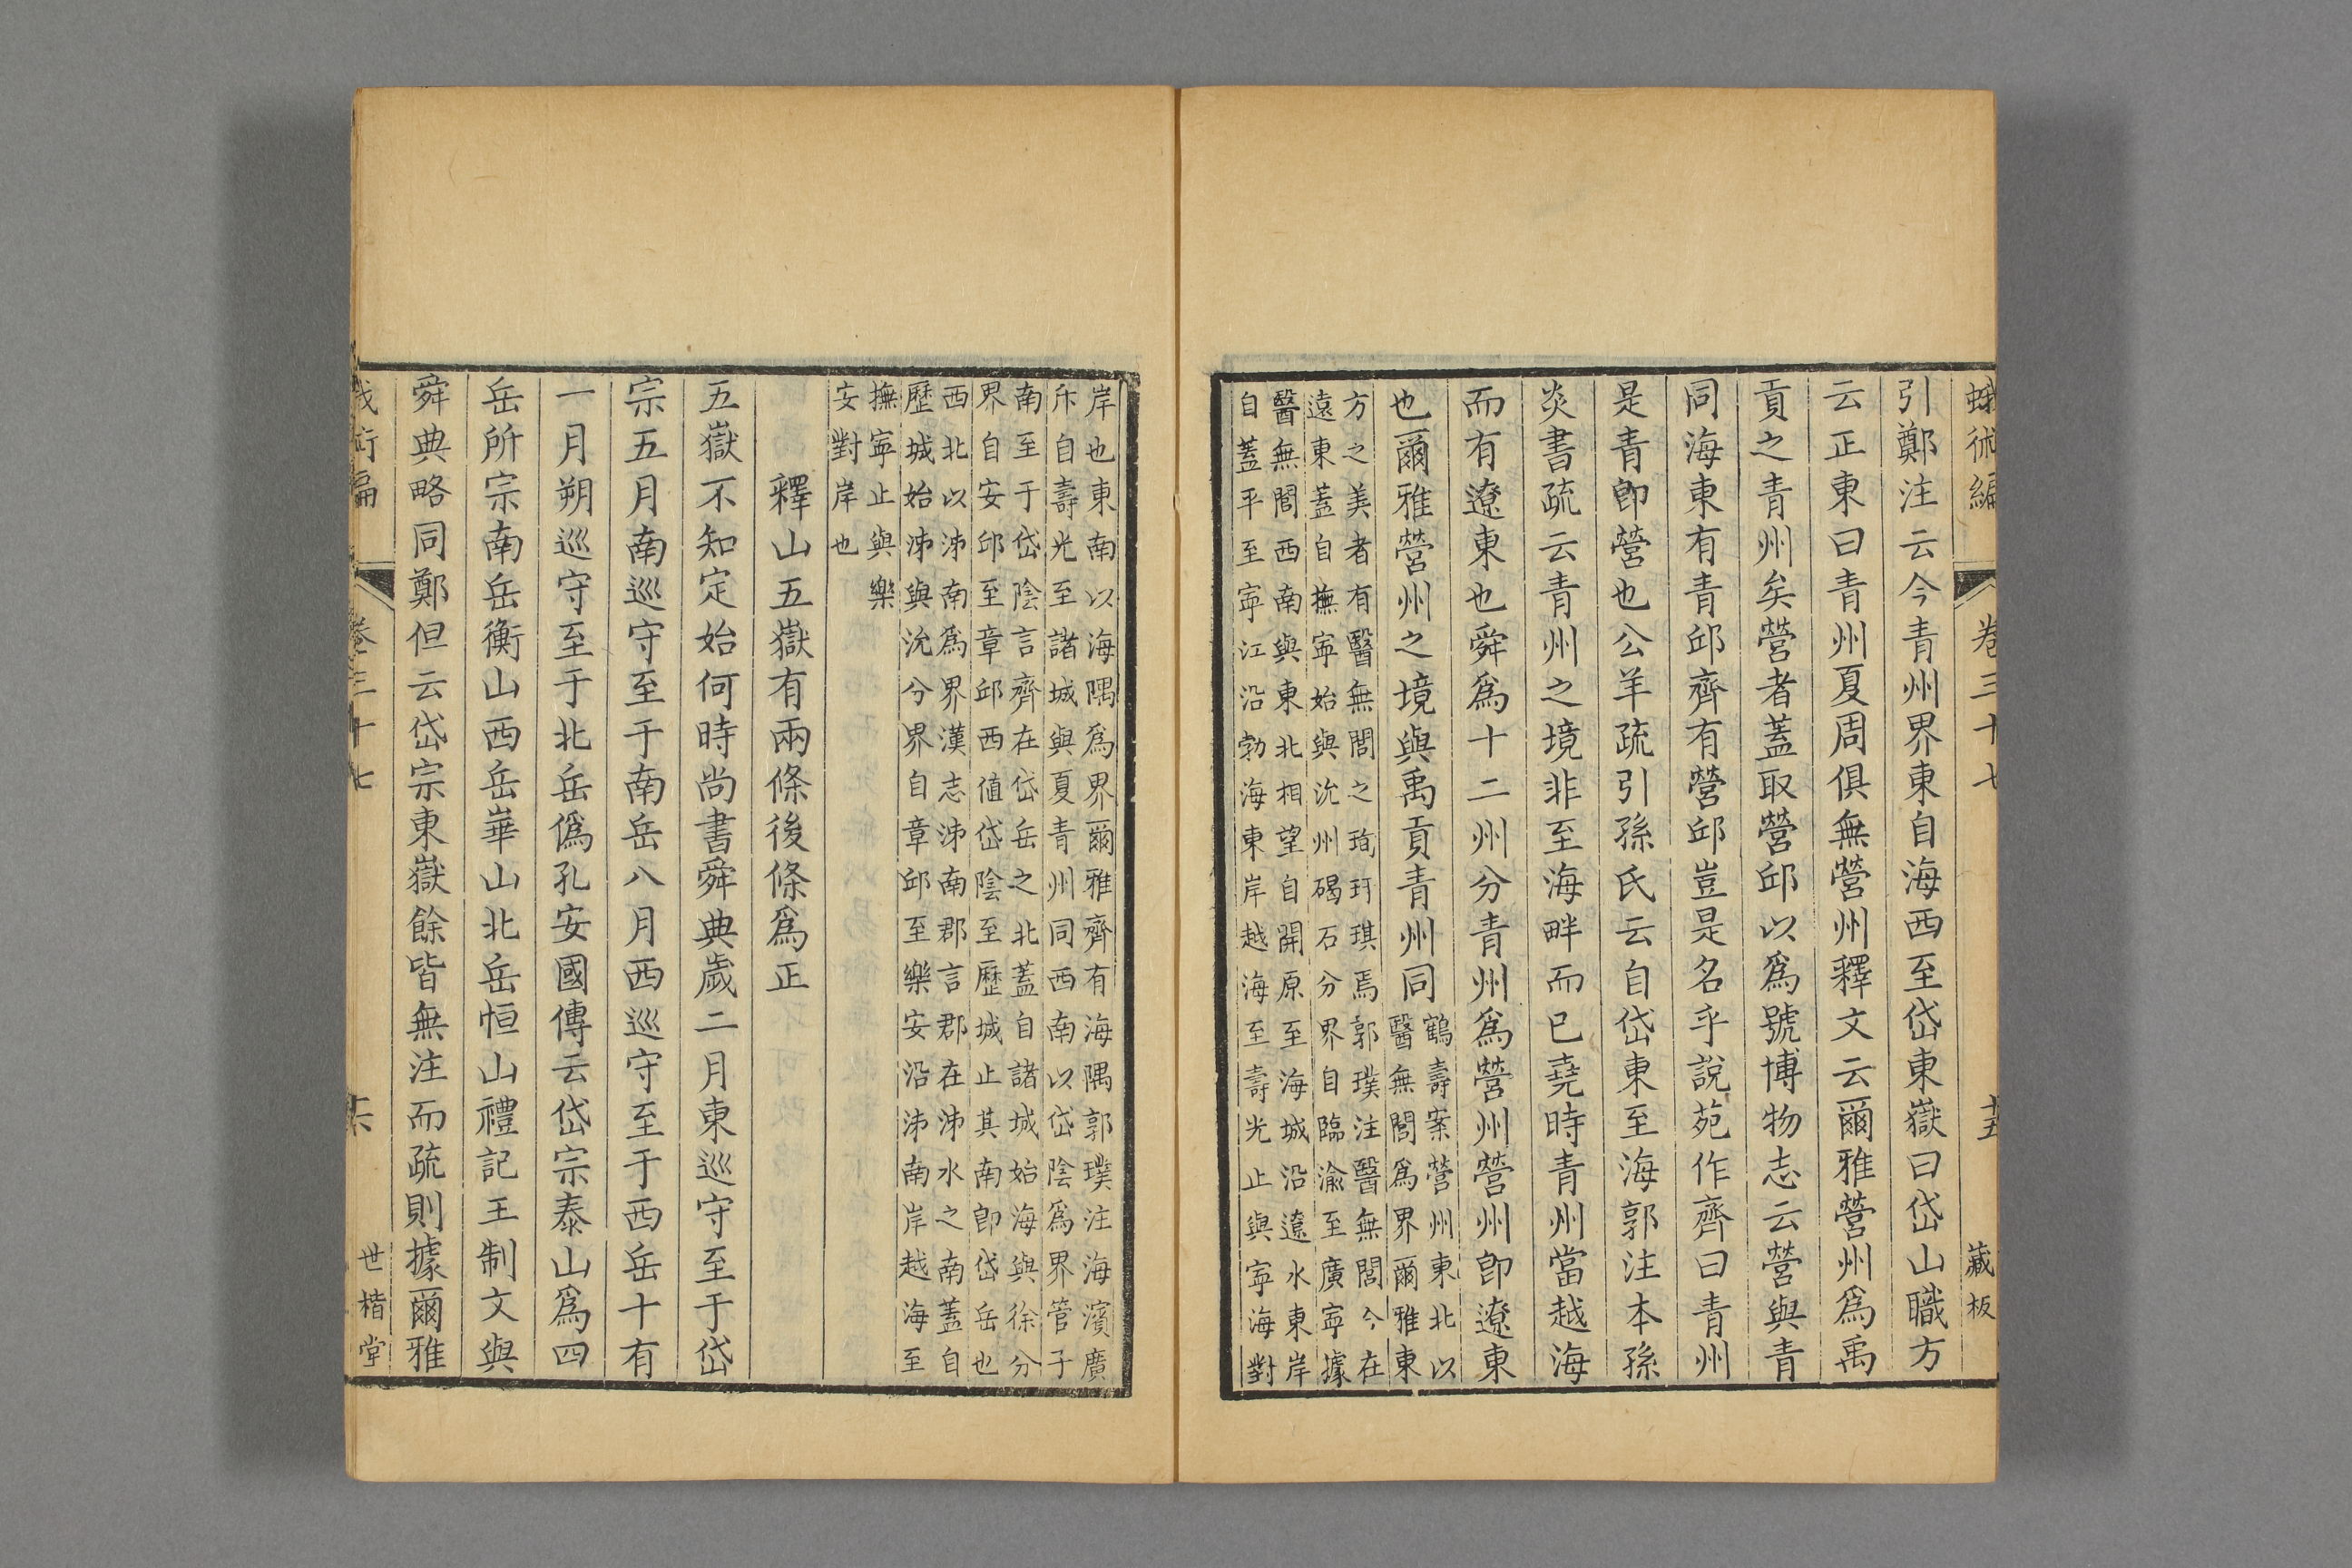 蛾術編 卷三十七 十五 藏板
引鄭注云今青州界東自海西至岱東嶽曰岱山職方
云正東曰青州夏周俱無營州釋文云爾雅營州爲禹
貢之青州矣營者蓋取營邱以爲號博物志云營與青
同海東有青邱齊有營邱豈是名乎說苑作齊曰青州
是青卽營也公羊疏引孫氏云自岱東至海郭注本孫
炎書疏云青州之境非至海畔而已堯時青州當越海
而有遼東也舜爲十二州分青州爲營州營州卽遼東
也爾雅營州之境與禹貢青州同鶴壽案營州東北以
醫無閭爲界爾雅東
方之美者有醫無閭之珣玗琪焉郭璞注醫無閭今在
遠東蓋自撫寧始與沇州碣石分界自臨渝至廣寧據
醫無閭西南與東北相望自開原至海城沿遼水東岸
自蓋平至寧江沿勃海東岸越海至壽光止與寧海對
岸也東南以海隅爲界爾雅齊有海隅郭璞注海濱廣
斥自壽光至諸城與夏青州同西南以岱陰爲界管子
南至于岱陰言齊在岱岳之北蓋自諸城始海與徐分
界自安邱至章邱西值岱陰至歷城止其南卽岱岳也
西北以沛南爲界漢志沛南郡言郡在沛水之南蓋自
歷城始沛與沇分界自章邱至樂安沿沛南岸越海至
撫寧止與樂
安對岸也
釋山五嶽有兩條後條爲正
五嶽不知定始何時尚書舜典歲二月東巡守至于岱
宗五月南巡守至于南岳八月西巡守至于西岳十有
一月朔巡守至于北岳僞孔安國傳云岱宗泰山爲四
岳所宗南岳衡山西岳華山北岳恒山禮記王制文與
舜典略同鄭但云岱宗東嶽餘皆無注而疏則據爾雅
蛾術編 卷三十七 十六 世楷堂